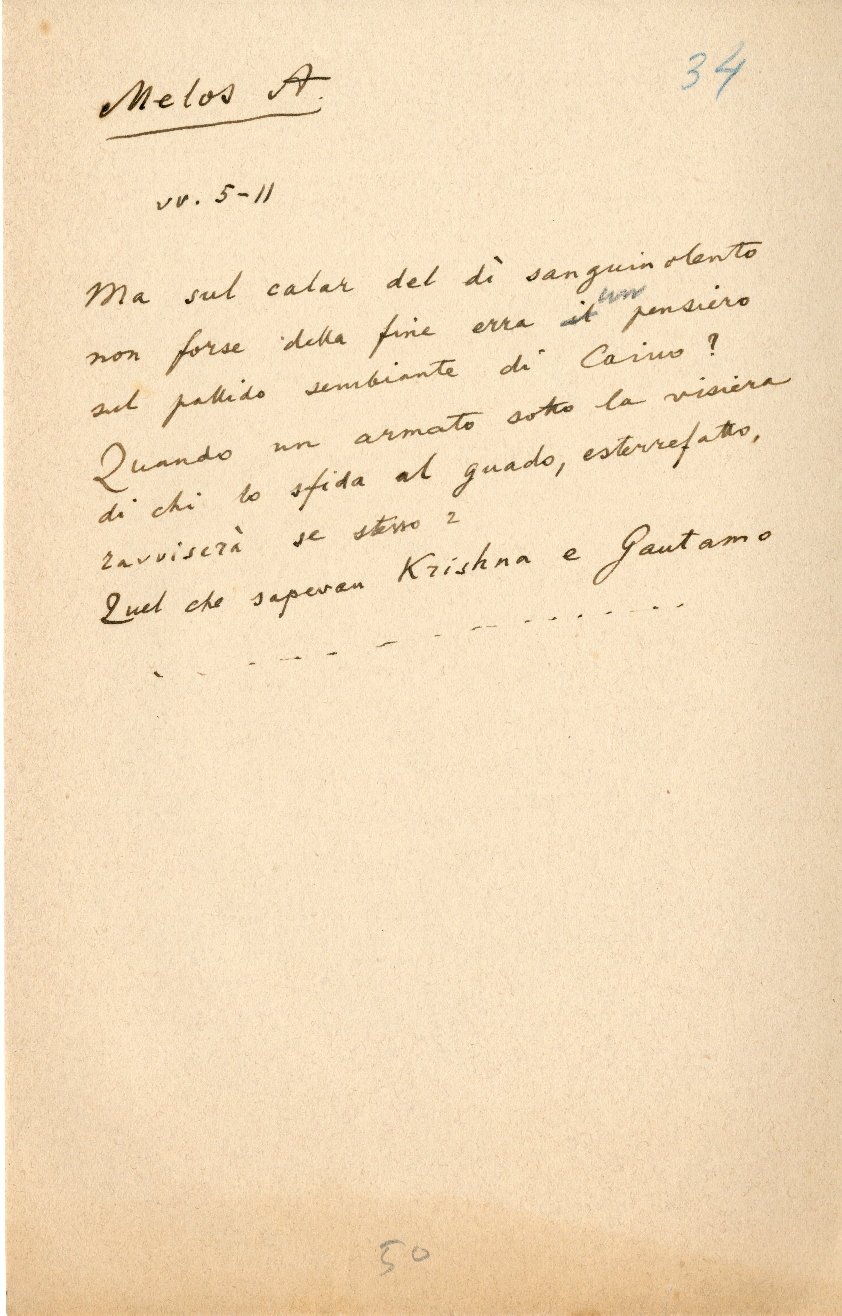 34
Melos A.
vv. 5-11
Ma sul calar del dì sanguinolento
non forse della fine erra il un pensiero
sul pallido sembiante di Caino?
Quando un armato sotto la visiera
di chi lo sfida al guado, esterrefatto,
ravviserà se stesso?
Quel che sapevan Krishna e Gautamo
50